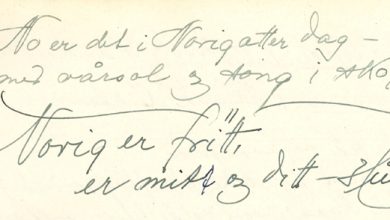 No er det i Noreg atter dag –
med vårsol og song i sko
Noreg er fritt,
er mitt og ditt –